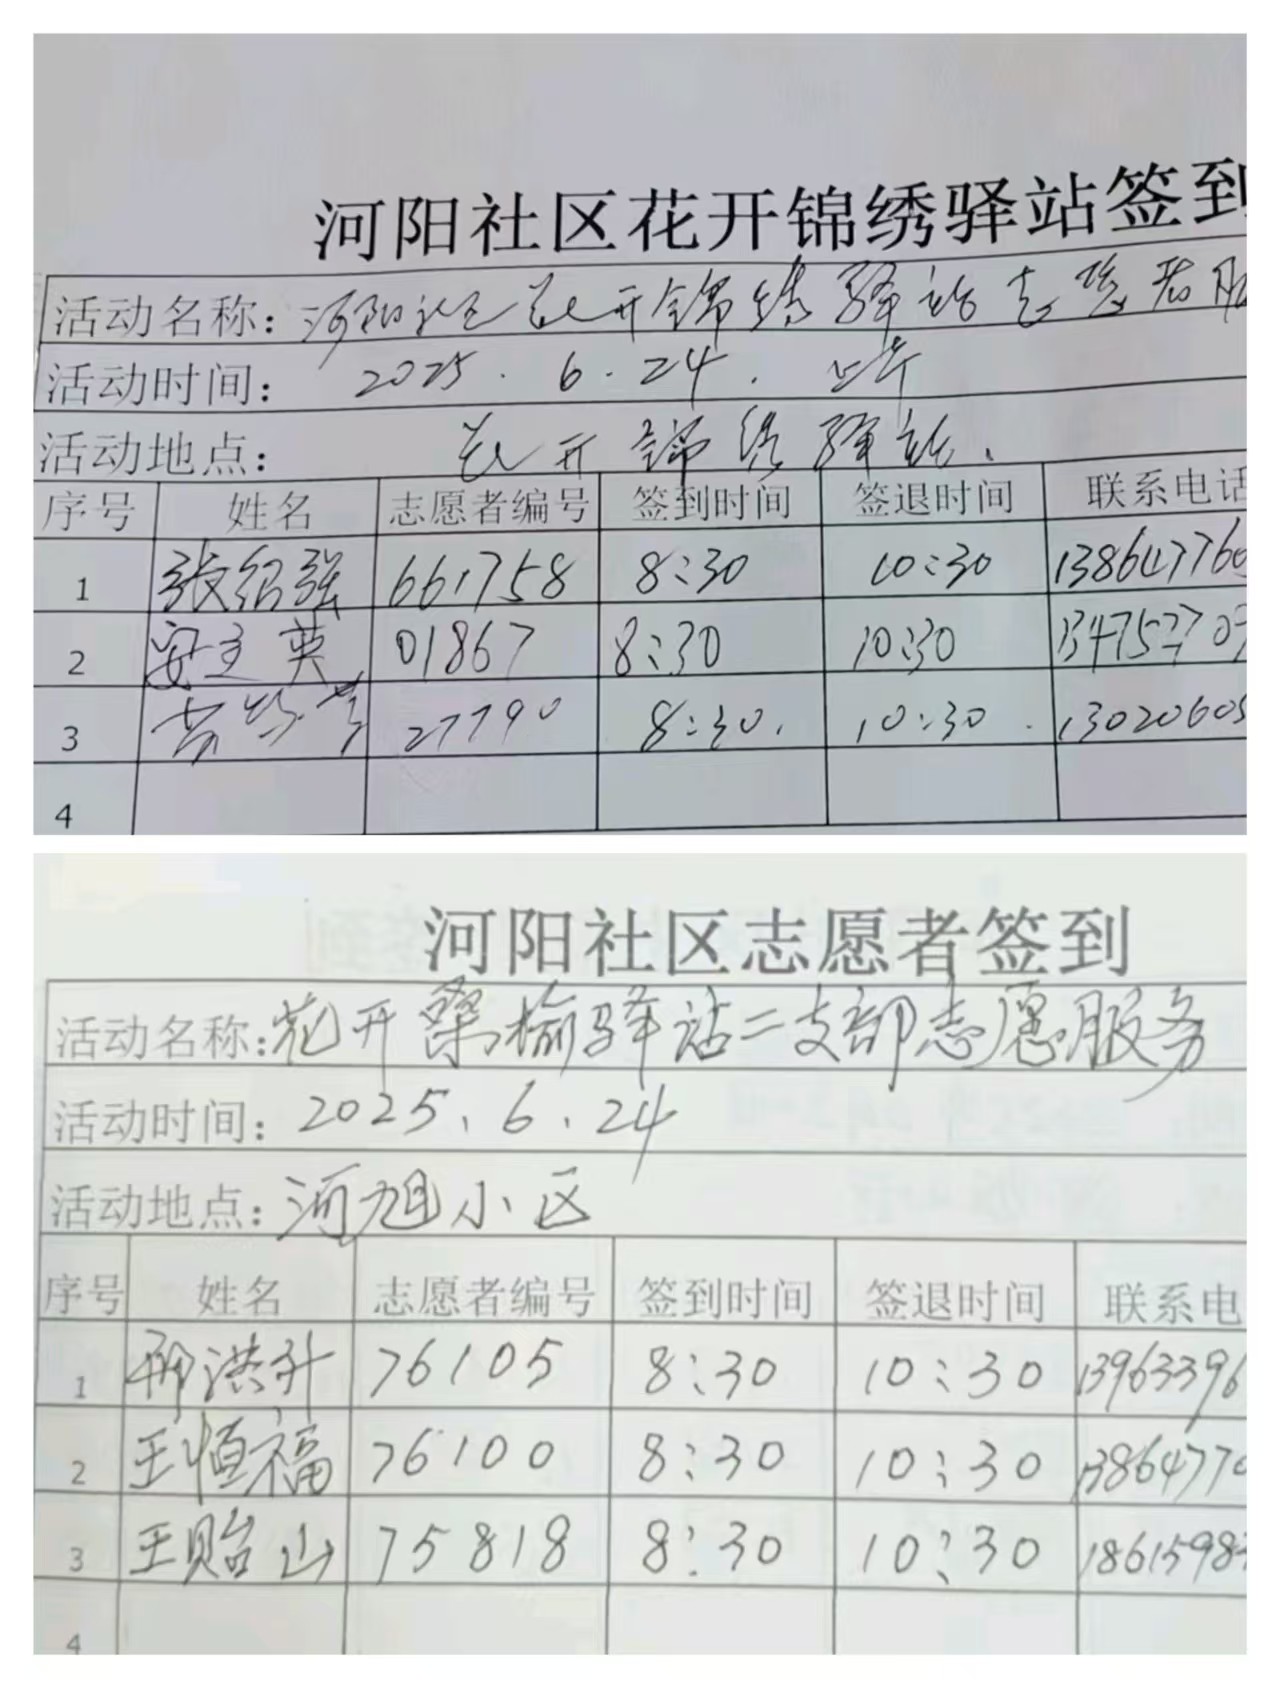 河阳社区花开锦绣驿站签到
活动名称：河阳社区花开锦绣驿站志愿者服
活动时间： 2025.6.24. 上午
活动地点： 花开锦绣驿站.
序号 姓名 志愿者编号 签到时间 签退时间 联系电话
1 张绍强 661758 8:30 10:30 138647760
2 安玉英 01867 8:30 10:30 1347527709
3 27790 8:30. 10:30. 13020605
4
河阳社区志愿者签到
活动名称：花开桑榆驿站二支部志愿服务
活动时间：2025、6、24
活动地点：河旭小区
序号 姓名 志愿者编号 签到时间 签退时间 联系电
1 邢洪升 76105 8:30 10:30 13963396
2 王恒福 76100 8:30 10:30 13864770
3 王贻山 75818 8:30 10:30 18615983
4